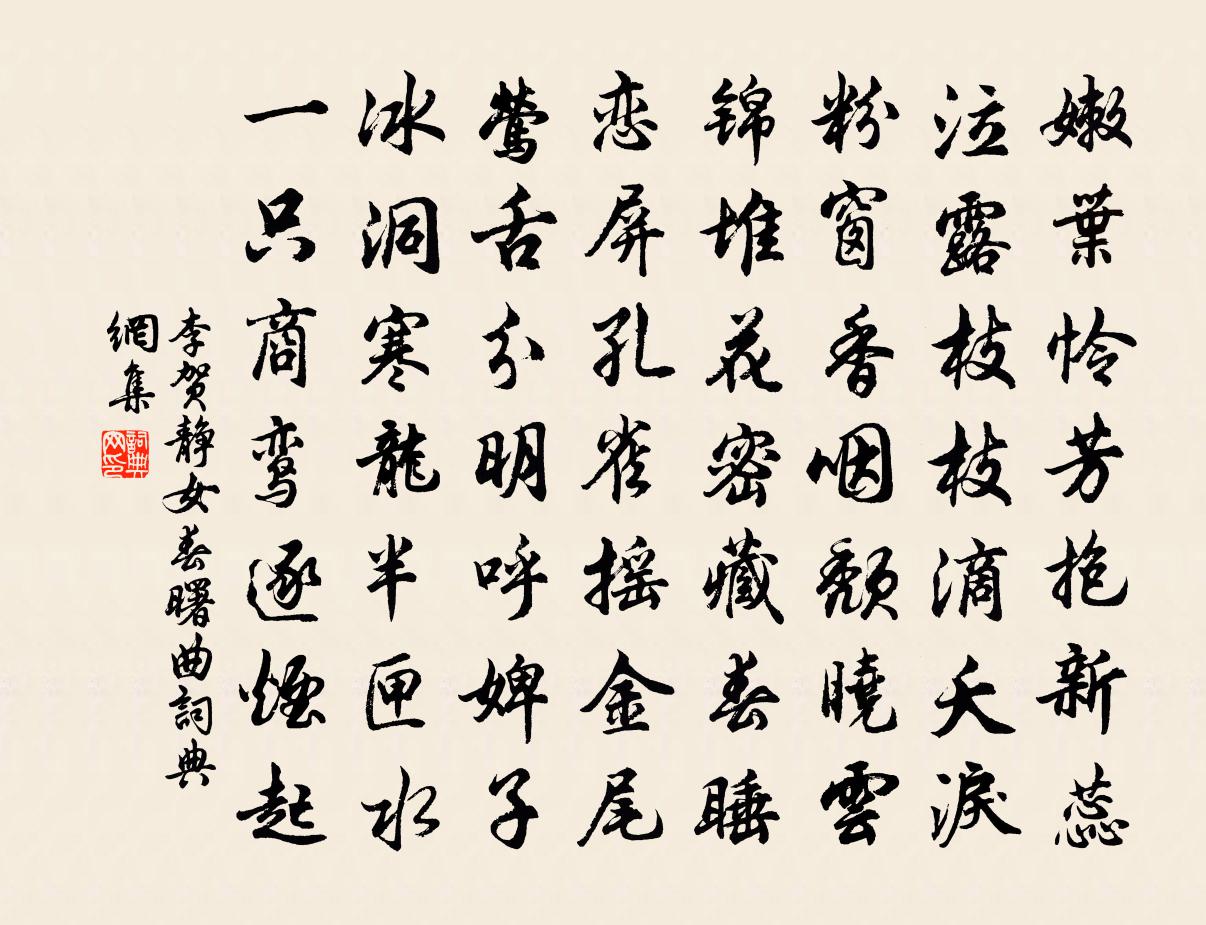 嫩葉怜芳抱新蕊
泣露枝枝滴夭淚
粉窗香咽颓曉雲
锦堆花密藏春睡
恋屏孔雀摇金尾
莺舌分明呼婢子
冰洞寒龍半匣水
一只商鸾逐煙起
李贺静女春曙曲詞典
網集
詞典
网印